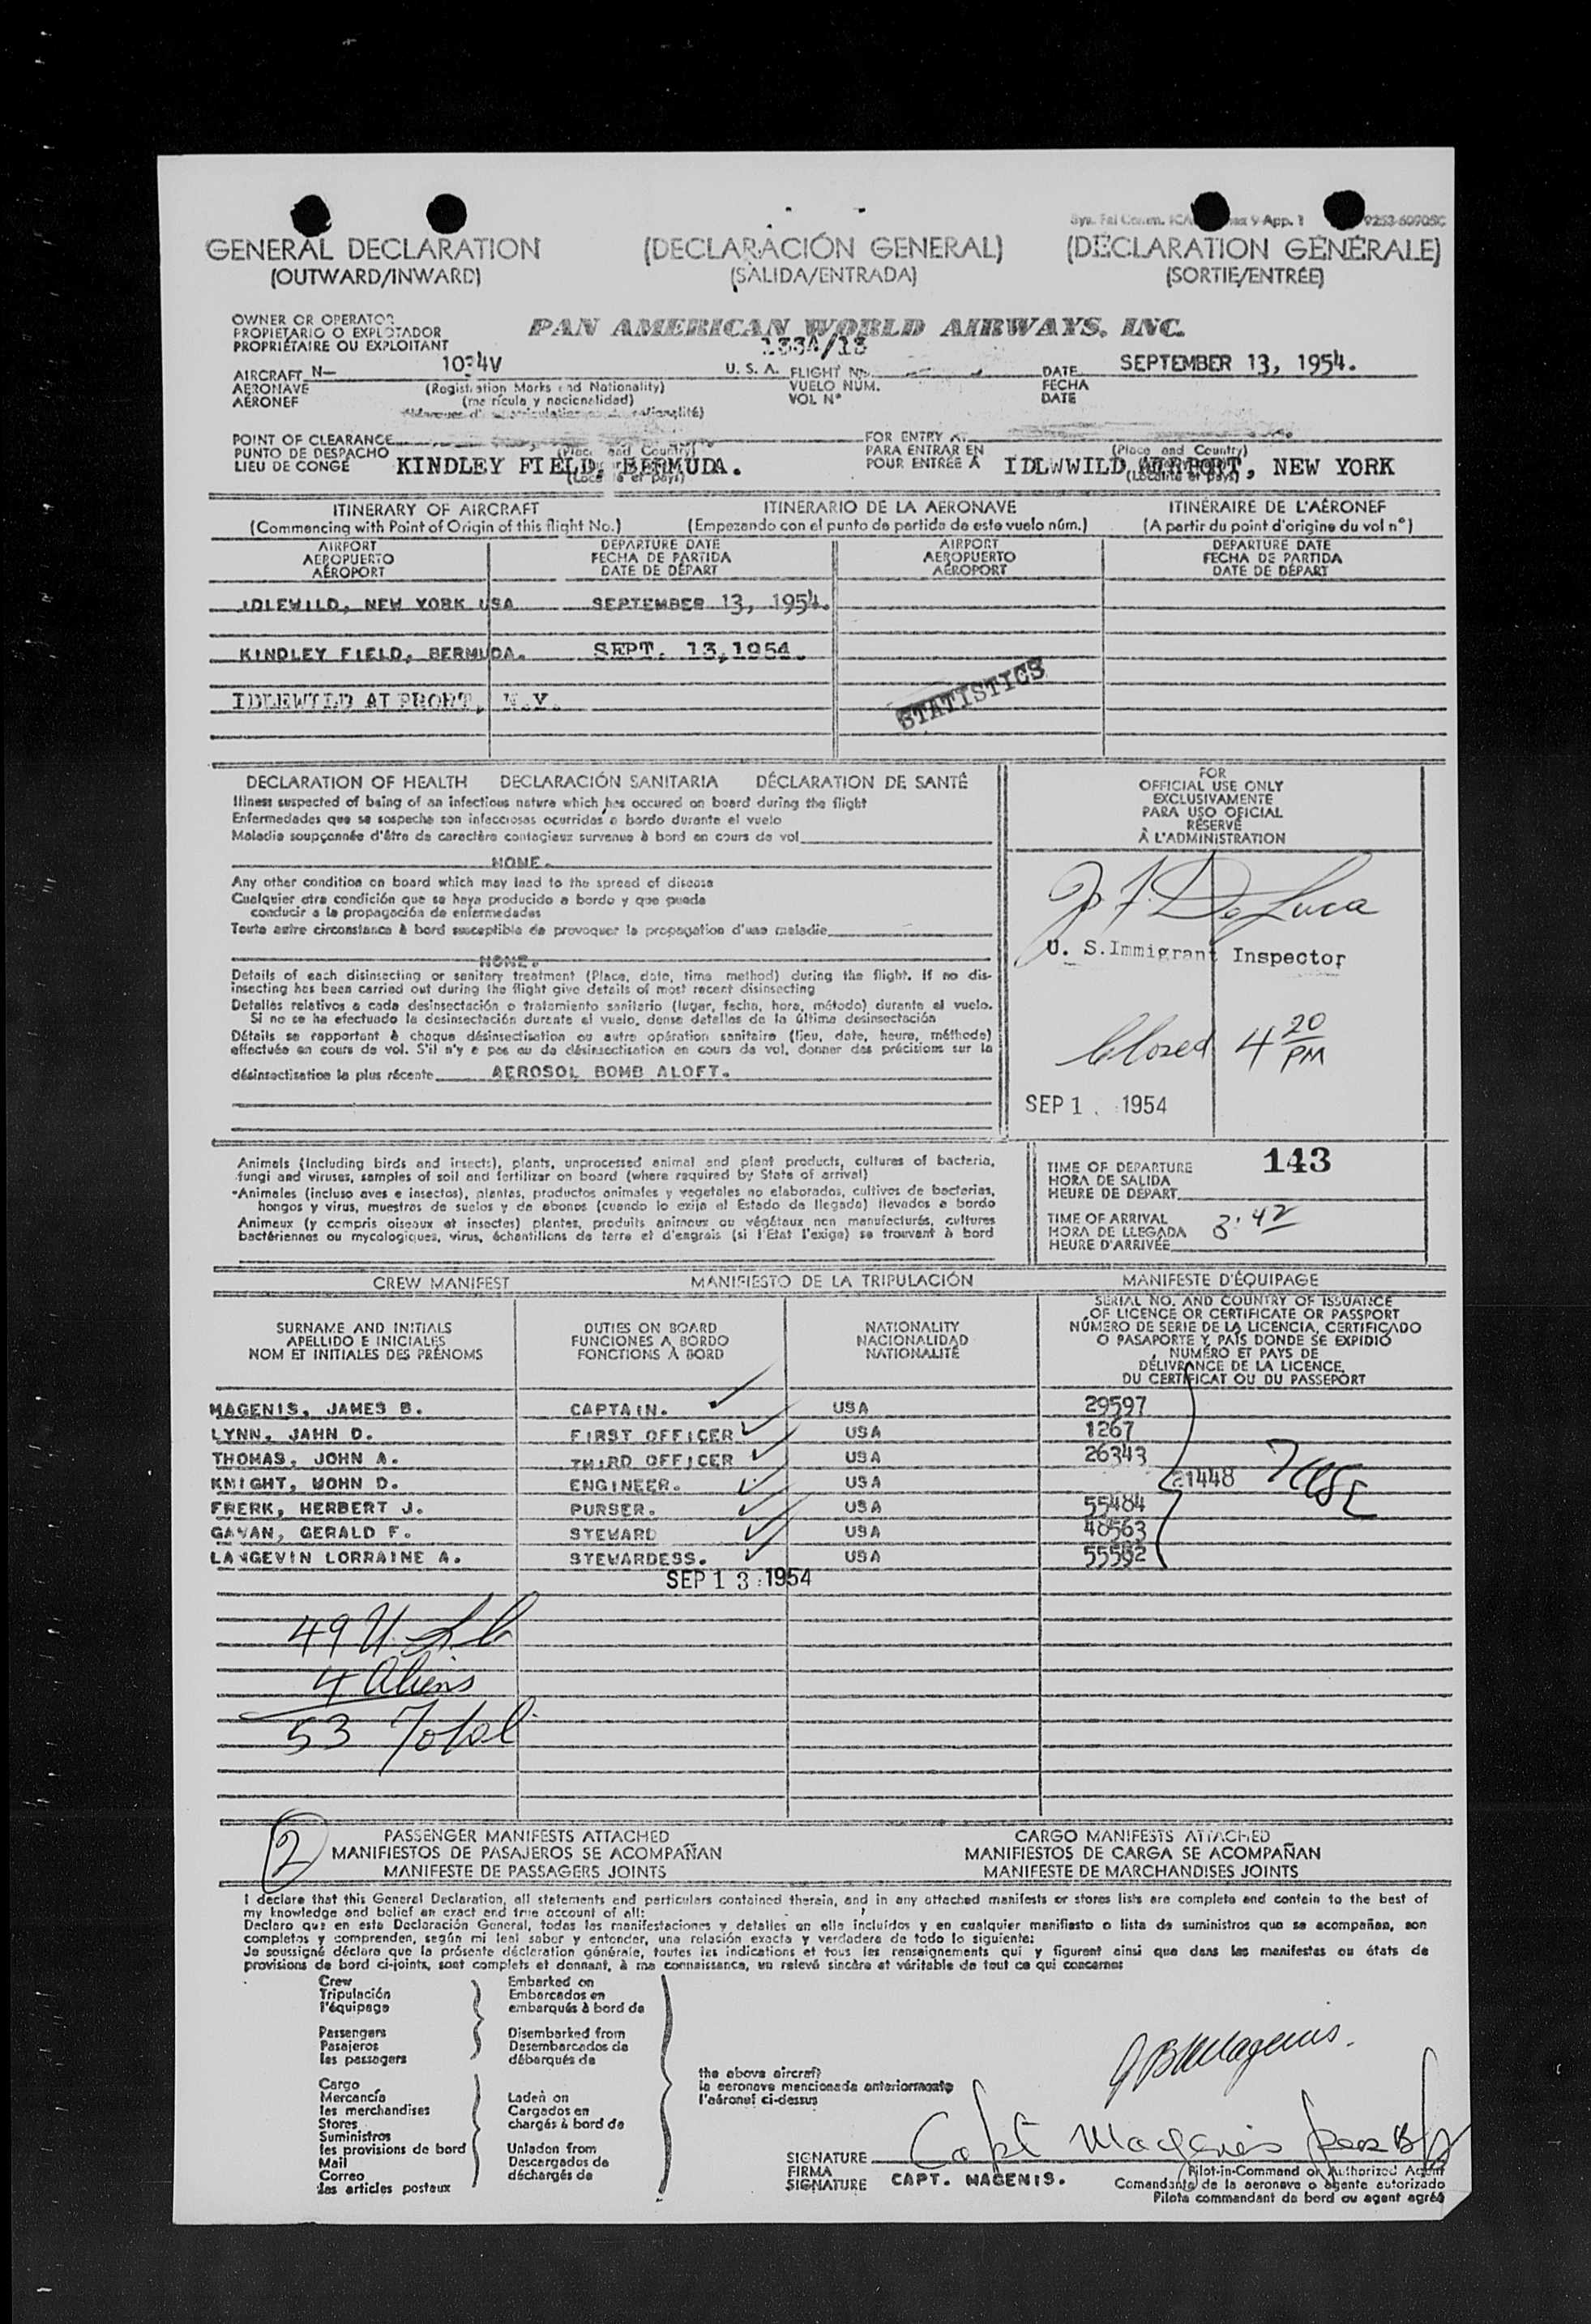 GENERAL DECLARATION
(OUTWARD/INWARD)
(DECLARACIÓN GENERAL)
(SALIDA/ENTRADA)
(DÉCLARATION GÉNÉRALE)
(SORTIE/ENTRÉE)
OWNER OR OPERATOR
PROPIETARIO O EXPLOTADOR
PROPRIÉTAIRE OU EXPLOITANT
PAN AMERICAN WORLD AIRWAYS, INC.
AIRCRAFT N-
AERONAVE
AÉRONEF
(Registration Marks and Nationality)
(matrícula y nacionalidad)
U. S. A.
133A/13
FLIGHT No.
VUELO NÚM.
VOL N°
DATE
FECHA
DATE
SEPTEMBER 13, 1954.
POINT OF CLEARANCE
PUNTO DE DESPACHO
LIEU DE CONGÉ
KINDLEY FIELD, BERMUDA.
FOR ENTRY AT
PARA ENTRAR EN
POUR ENTRÉE À
(Place and Country)
IDLWWILD AIRPORT, NEW YORK
ITINERARY OF AIRCRAFT
(Commencing with Point of Origin of this flight No.)
ITINERARIO DE LA AERONAVE
(Empezando con el punto de partida de este vuelo núm.)
ITINÉRAIRE DE L'AÉRONEF
(A partir du point d'origine du vol n°)
AIRPORT
AEROPUERTO
AÉROPORT
DEPARTURE DATE
FECHA DE PARTIDA
DATE DE DÉPART
AIRPORT
AEROPUERTO
AÉROPORT
DEPARTURE DATE
FECHA DE PARTIDA
DATE DE DÉPART
IDLEWILD, NEW YORK USA SEPTEMBER 13, 1954.
KINDLEY FIELD, BERMUDA. SEPT. 13,1954.
IDLEWILD AI PRORT, N.Y.
STATISTICS
DECLARATION OF HEALTH DECLARACIÓN SANITARIA DÉCLARATION DE SANTÉ
Illness suspected of being of an infectious nature which has occured on board during the flight
Enfermedades que se sospeche son infecciosas ocurridas a bordo durante el vuelo
Maladie soupçonnée d'être de caractère contagieux survenue à bord en cours de vol
NONE.
Any other condition on board which may lead to the spread of disease
Cualquier otra condición que se haya producido a bordo y que pueda
conducir a la propagación de enfermedades
Toute autre circonstance à bord susceptible de provoquer la propagation d'une maladie
NONE.
Details of each disinsecting or sanitary treatment (Place, date, time method) during the flight. If no dis-
insecting has been carried out during the flight give details of most recent disinsecting
Detalles relativos a cada desinsectación o tratamiento sanitario (lugar, fecha, hora, método) durante el vuelo.
Si no se ha efectuado la desinsectación durante el vuelo, dense detalles de la última desinsectación
Détails se rapportant à chaque désinsectisation ou autre opération sanitaire (lieu, date, heure, méthode)
effectuée en cours de vol. S'il n'y a pas eu de désinsectisation en cours de vol, donner des précisions sur la
désinsectisation la plus récente AEROSOL BOMB ALOFT.
FOR
OFFICIAL USE ONLY
EXCLUSIVAMENTE
PARA USO OFICIAL
RÉSERVÉ
À L'ADMINISTRATION
De Luca
U. S. Immigrant Inspector
Closed 4 20 PM
SEP 1 1954
Animals (including birds and insects), plants, unprocessed animal and plant products, cultures of bacteria,
fungi and viruses, samples of soil and fertilizer on board (where required by State of arrival)
Animales (incluso aves e insectos), plantas, productos animales y vegetales no elaborados, cultivos de bacterias,
hongos y virus, muestras de suelos y de abonos (cuando lo exija el Estado de llegada) llevados a bordo
Animaux (y compris oiseaux et insectes) plantes, produits animaux ou végétaux non manufacturés, cultures
bactériennes ou mycologiques, virus, échantillons de terre et d'engrais (si l'Etat l'exige) se trouvant à bord
TIME OF DEPARTURE
HORA DE SALIDA
HEURE DE DÉPART
143
TIME OF ARRIVAL
HORA DE LLEGADA
HEURE D'ARRIVÉE
3:42
CREW MANIFEST
MANIFIESTO DE LA TRIPULACIÓN
MANIFESTE D'ÉQUIPAGE
SURNAME AND INITIALS
APELLIDO E INICIALES
NOM ET INITIALES DES PRÉNOMS
DUTIES ON BOARD
FUNCIONES A BORDO
FONCTIONS À BORD
NATIONALITY
NACIONALIDAD
NATIONALITÉ
SERIAL NO. AND COUNTRY OF ISSUANCE
OF LICENCE OR CERTIFICATE OR PASSPORT
NÚMERO DE SERIE DE LA LICENCIA, CERTIFICADO
O PASAPORTE Y PAÍS DONDE SE EXPIDIÓ
NUMÉRO ET PAYS DE
DÉLIVRANCE DE LA LICENCE,
DU CERTIFICAT OU DU PASSEPORT
MAGENIS, JAMES B. CAPTAIN. USA 29597
LYNN, JAHN D. FIRST OFFICER USA 1267
THOMAS, JOHN A. THIRD OFFICER USA 26343
KNIGHT, WOHN D. ENGINEER. USA 21448
FRERK, HERBERT J. PURSER. USA 55484
GAVAN, GERALD F. STEWARD USA 48563
LANGEVIN LORRAINE A. STEWARDESS. USA 55592
SEP 13 1954
49 U.S.C.
4 Aliens
53 Total
2
PASSENGER MANIFESTS ATTACHED
MANIFIESTOS DE PASAJEROS SE ACOMPAÑAN
MANIFESTE DE PASSAGERS JOINTS
CARGO MANIFESTS ATTACHED
MANIFIESTOS DE CARGA SE ACOMPAÑAN
MANIFESTE DE MARCHANDISES JOINTS
I declare that this General Declaration, all statements and particulars contained therein, and in any attached manifests or stores lists are complete and contain to the best of
my knowledge and belief an exact and true account of all:
Declaro que en esta Declaración General, todas las manifestaciones y detalles en ella incluídos y en cualquier manifiesto o lista de suministros que se acompañan, son
completos y comprenden, según mi leal saber y entender, una relación exacta y verdadera de todo lo siguiente:
Je soussigné déclare que la présente déclaration générale, toutes les indications et tous les renseignements qui y figurent ainsi que dans les manifestes ou états de
provisions de bord ci-joints, sont complets et donnent, à ma connaissance, un relevé sincère et véritable de tout ce qui concerne:
Crew
Tripulación
l'équipage
Passengers
Pasajeros
les passagers
Cargo
Mercancía
les merchandises
Stores
Suministros
les provisions de bord
Mail
Correo
les articles postaux
Embarked on
Embarcados en
embarqués à bord de
Disembarked from
Desembarcados de
débarqués de
Laden on
Cargados en
chargés à bord de
Unladen from
Descargados de
déchargés de
the above aircraft
la aeronave mencionada anteriormente
l'aéronef ci-dessus
JBMagenis.
Capt Magenis
SIGNATURE
FIRMA
SIGNATURE
CAPT. MAGENIS.
Pilot-in-Command or Authorized Agent
Comandante de la aeronave o agente autorizado
Pilote commandant de bord ou agent agréé